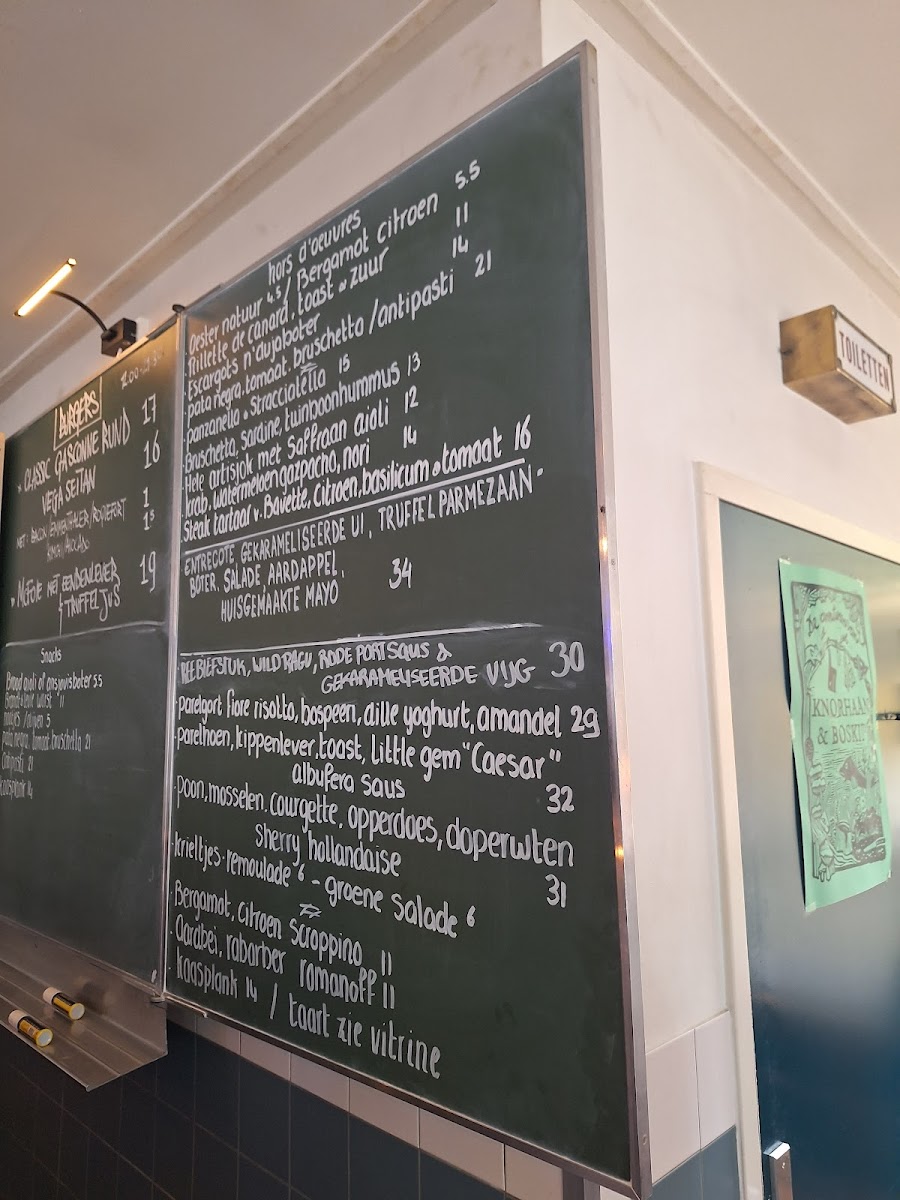 BURGERS
CLASSIC GASCONNE RUND 17
VEGA SEITAN 16
MET: BACON/EMMENTHALER/ROQUEFORT 1
AVOCADO 1.5
MCFOIE MET EENDENLEVER 19
& TRUFFELJUS
Snacks
Brood aioli of ansjovisboter 5.5
11
nootjes/olijven 5
pata negra, tomaat, bruschetta 21
Antipasti 21
kaasplank 14
hors d'oeuvres
Oester natuur 4.5 / Bergamot citroen 5.5
Rillette de canard, toast & zuur 11
Escargots n'dujaboter 14
pata negra, tomaat, bruschetta / antipasti 21
panzanella & Stracciatella 15
Bruschetta, sardine, tuinboonhummus 13
Hele artisjok met Saffraan aioli 12
krab, watermeloengazpacho, nori 14
Steak tartaar v. Bavette, citroen, basilicum & tomaat 16
ENTRECOTE GEKARAMELISEERDE UI, TRUFFEL PARMEZAAN-
BOTER, SALADE AARDAPPEL,
HUISGEMAAKTE MAYO 34
REEBIEFSTUK, WILDRAGU, RODE PORTSAUS &
GEKARAMELISEERDE VIJG 30
parelgort fiore risotto, bospeen, dille yoghurt, amandel 29
parelhoen, kippenlever toast, Little gem "Caesar"
albufera saus 32
poon, mosselen, courgette, opperdoes, doperwten
Sherry hollandaise 31
krieltjes-remoulade 6 - groene salade 6
Bergamot, citroen Scroppino 11
Aardbei, rabarber romanoff 11
kaasplank 14 / taart zie vitrine
TOILETTEN
KNORHAAN
& BOSKI